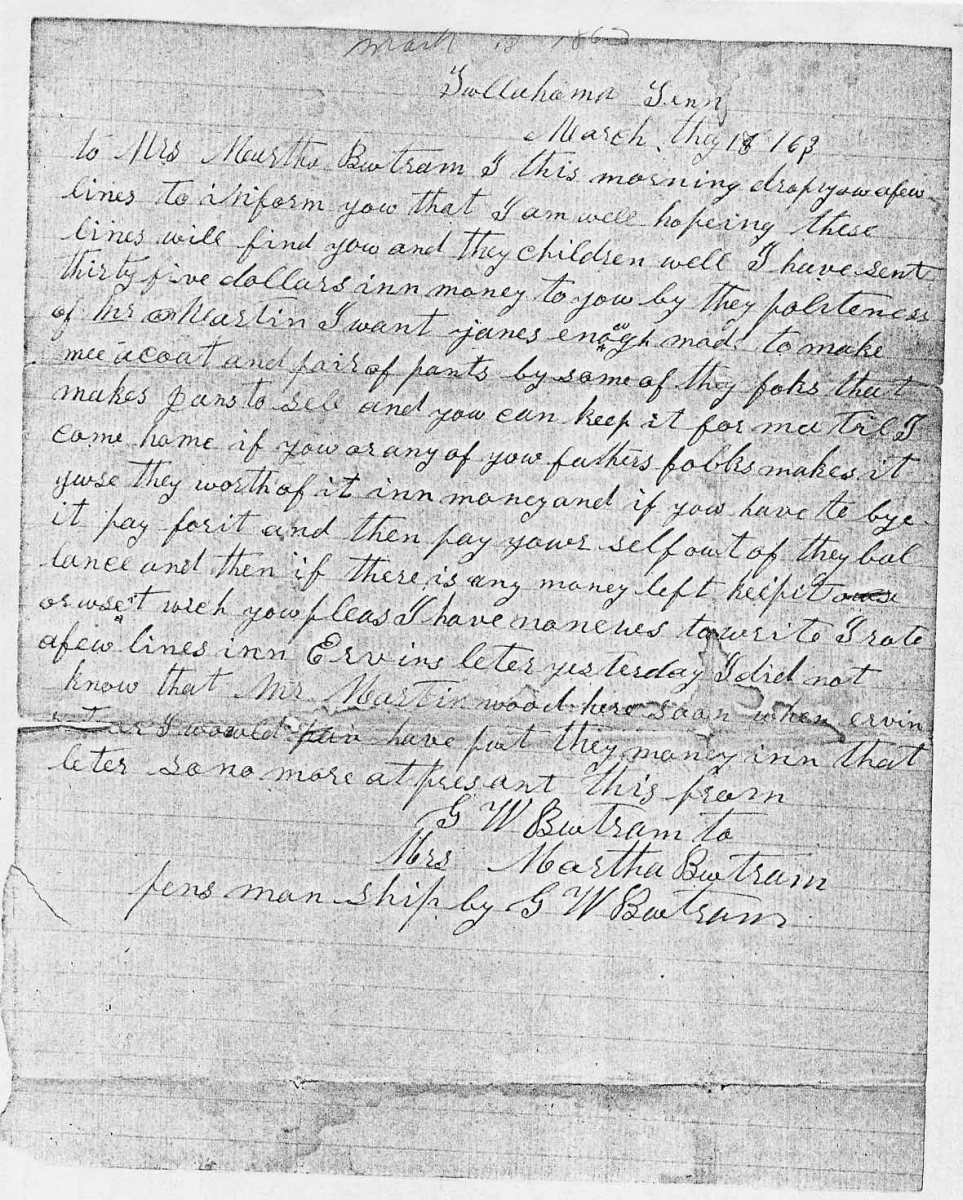 March 18 1863
Twllahoma Tenn
March they 18 163
to Mrs Martha Bwtram I this morning drop yow a few
lines to inform yow that I am well hopeing these
lines will find yow and they children well I have sent
thirty five dollars inn money to yow by they politeness
of Mr Martin I want janes enough mad to make
mee a coat and pair of pants by some of they foks that
makes jans to sell and yow can keep it for me till I
come home if yow or any of yow fathers folks makes it
they worth of it inn money and if yow have to bye
it pay for it and then pay yowr self owt of they bal
lance and then if there is any money left keep it
or wse it wich yow pleas I have no news to write I rote
a few lines inn Ervins leter yesterday I did not
know that Mr Martin wood here soon when ervin
I wowld have pwt they money inn that
leter so no more at presant this from
G W Bwtram to
Mrs Martha Bwtram
pens man ship by G W Bwtram